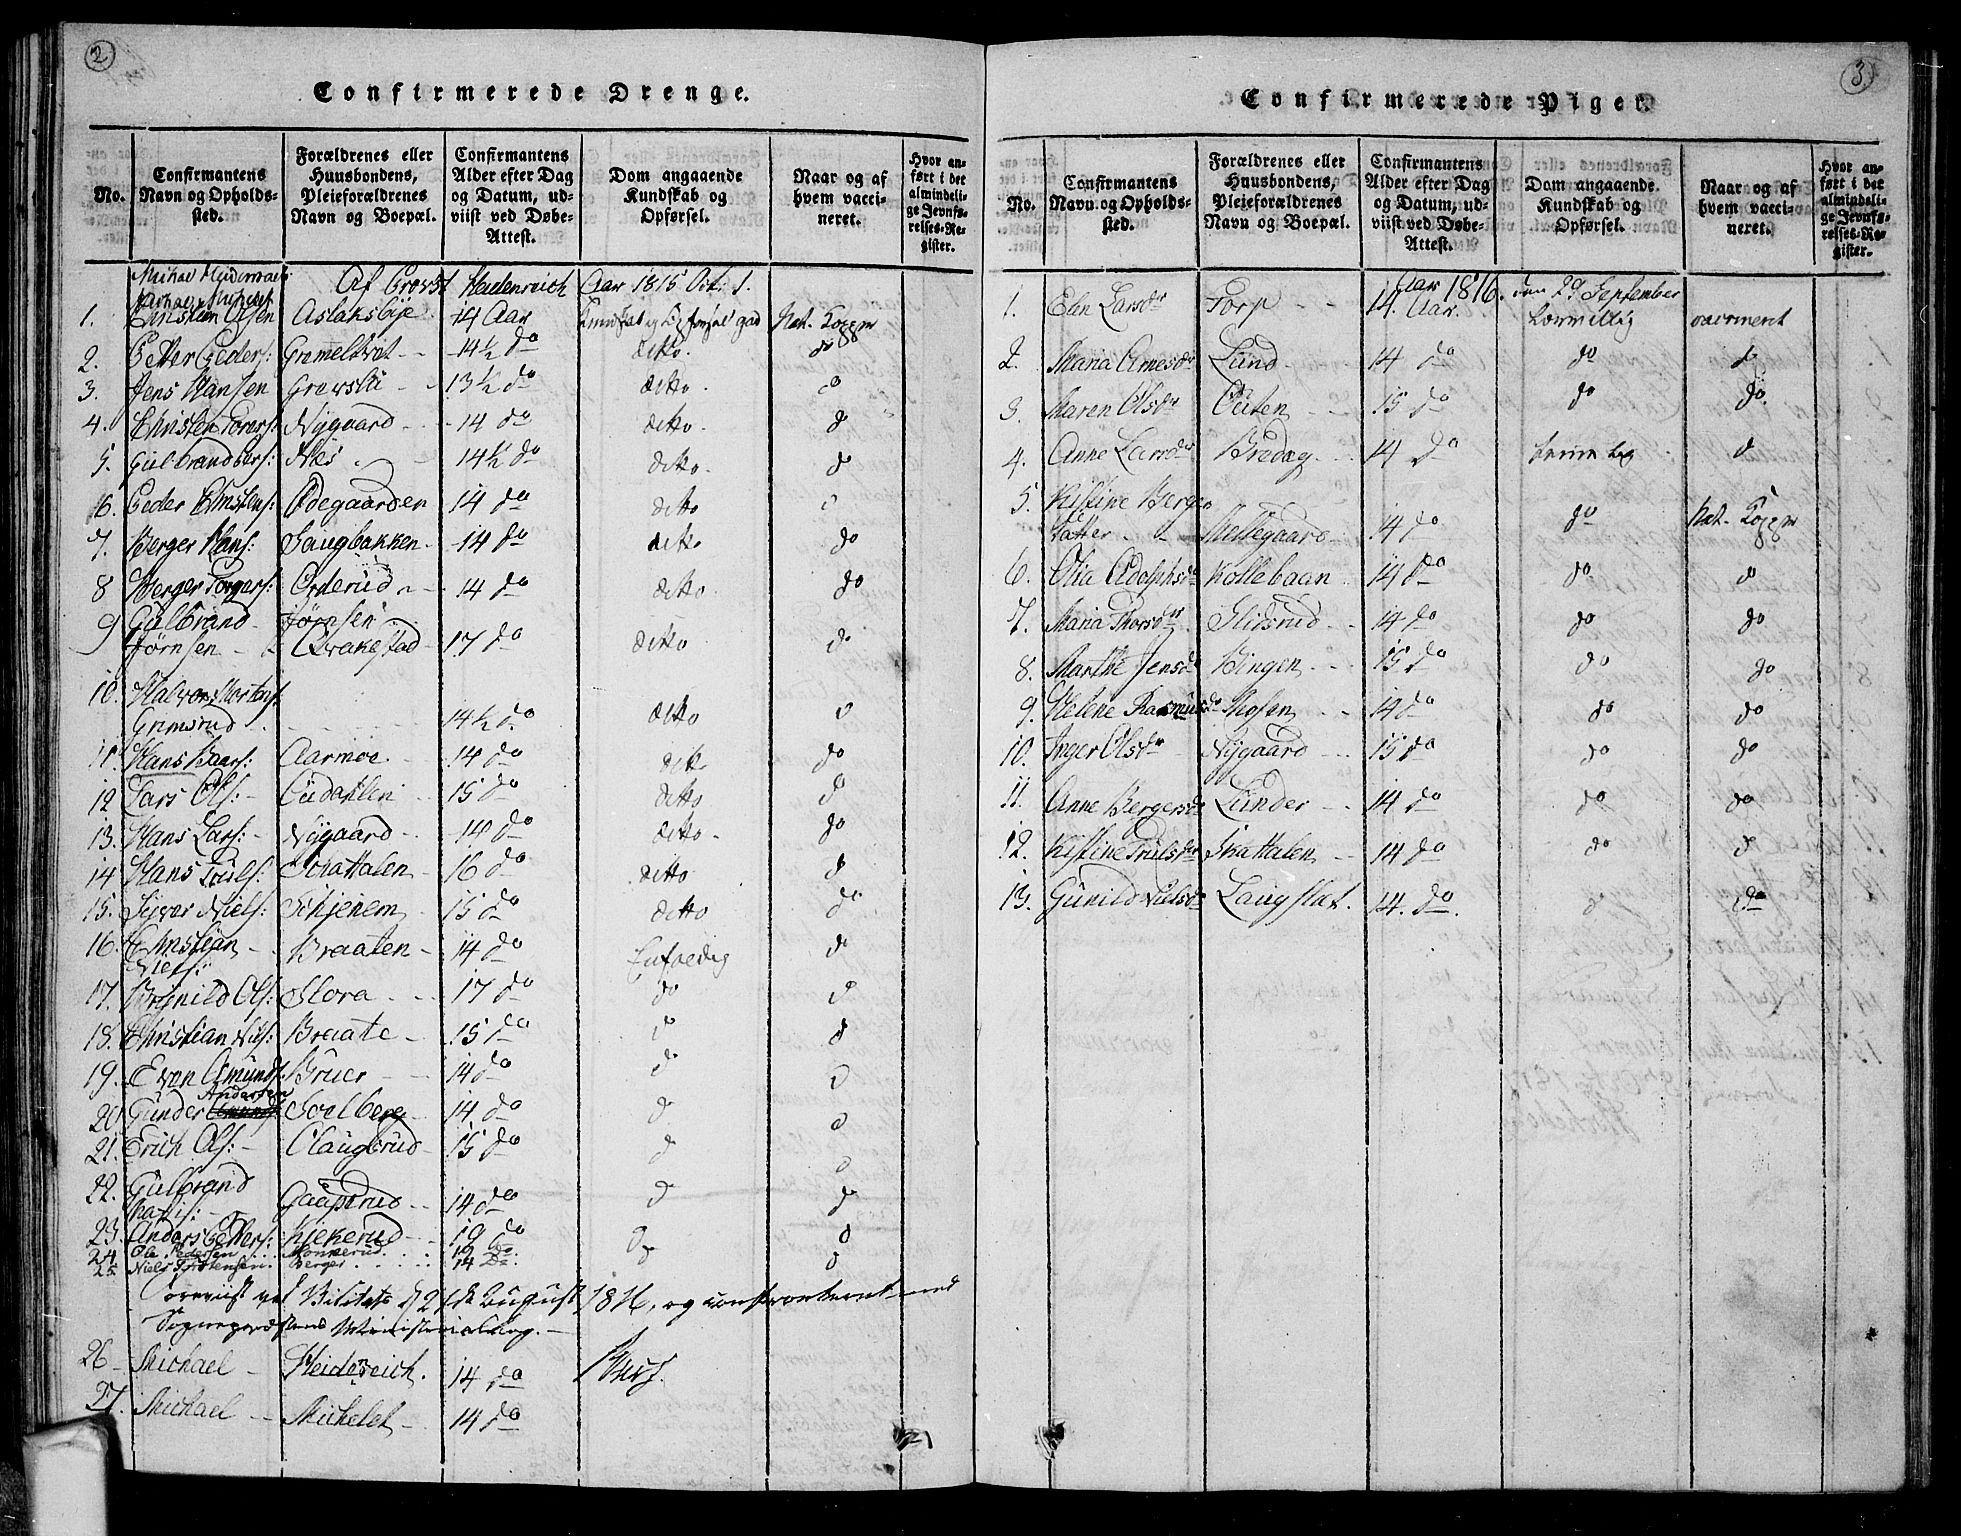 2
Confirmerede Drenge.
No.
Confirmantens Navn og Opholdssted.
Forældrenes eller Huusbondens, Pleieforældrenes Navn og Boepæl.
Confirmantens Alder efter Dag og Datum, udviist ved Døbe-Attest.
Dom angaaende Kundskab og Opførsel.
Naar og af hvem vaccineret.
Hvor anført i det almindelige Jevnførelses-Register.
Af Provst Heidenreich Aar 1815 Oct: 1.
1. Christian Olsen Aslaksbye 14 Aar Kundskab og Opførsel god Nat. Kopper
2. Petter Peders: Gremelbret 14½ do detto. do
3. Jens Hansen Grevsli 13½ do detto. do
4. Christen Torers: Nygaard 14 do detto. do
5. Gulbrand Bers: Næs 14½ do detto. do
6. Peder Christens: Ødegaarden 14 do detto do
7. Berger Hans: Saugbakken 14 do detto do
8 Berger Torgers: Orderud 14 do detto. do
9 Gulbrand Jørnsen
Jørnsen Qvakestad 17 do detto do
10. Halvor Mortens:
Grimsrud 14½ do detto do
11. Hans Baars: Aarmoe 14 do detto do
12 Lars Ols: Oudahlen 15 do detto do
13. Hans Lars: Nygaard 14 do detto do
14 Hans Truls: Scattalen 16 do detto do
15. Syver Niels: Schjenem 15 do detto do
16. Christian Braaten 14 do do
Niels:
17. Brynild Ols: Flora 17 do do do
18. Christian Niels: Braate 15 do do do
19. Even Amunds: Bruer 14 do do do
Andersen
20. Gunder Solberg 14 do do do
21. Erich Ols: Claugsrud 15 do do do
22. Gulbrand
Mattis: Gaapsrud 14 do do do
23. Anders Petters: Kiekerud 19 do do do
24 Ole Pedersen Monkerud 19 do do do
25 Niels Torstensen Berger 14 Do.
Foreviist ved Visitats d 21de August 1816, og confronteret med
Sognepræstens Ministerialbog.
26 Michael Heidereich. 14 do
27. Michael Michelet 14 do
3
Confirmerede Piger.
No.
Confirmantens Navn og Opholdssted.
Forældrenes eller Huusbondens, Pleieforældrenes Navn og Boepæl.
Confirmantens Alder efter Dag og Datum, udviist ved Døbe-Attest.
Dom angaaende Kundskab og Opførsel.
Naar og af hvem vaccineret.
Hvor anført i det almindelige Jevnførelses-Register.
Aar 1816. den 29 September
1. Elen Larsdr Torp 14. Aar. vaccineret
2. Maria Arnesdr Lund 14 do do do
3 Maren Olsdr Outen 15 do do do
4. Anne Larsdr Bredag 14 do do
5. Kistine Berger
datter Mellegaard 14 do do Nat. Kopper
6. Olia Adolphsdr Kollebaan 14 do do do
7. Maria Thorsdr Slidsrud 14 do do do
8. Marthe Jensdr Bingen 15 do do do
9. Helene Rasmusdr Mosen 14 do do do
10. Inger Olsdr Nygaard 15 do do do
11. Anne Bergersdr Lunder 14 do do do
12. Kistine Trulsdr Skattalen 14 do do do
13. Gunild Nielsdr Laugslat. 14. do. do do